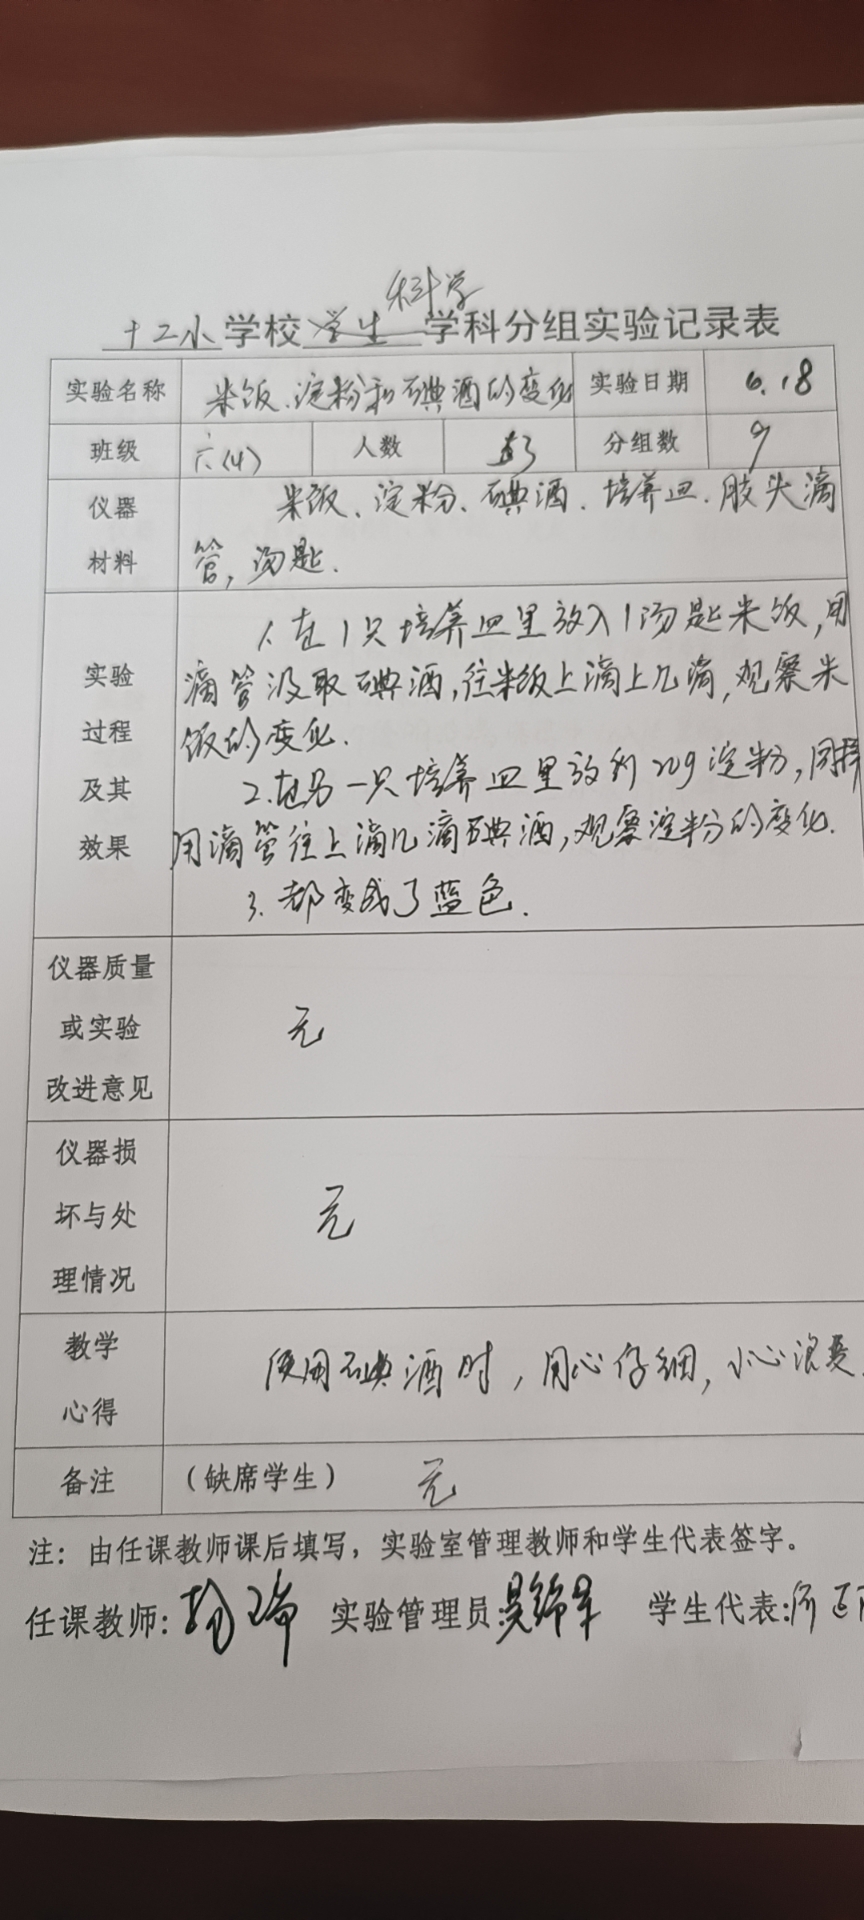 科学
十二小学校学生学科分组实验记录表
实验名称 米饭、淀粉和碘酒的变化 实验日期 6.18
班级 六(4) 人数 53 分组数 9
仪器材料 米饭、淀粉、碘酒、培养皿、胶头滴
管,汤匙.
实验过程及其效果 1.在1只培养皿里放入1汤匙米饭,用
滴管汲取碘酒,往米饭上滴上几滴,观察米
饭的变化.
2.在另一只培养皿里放约20g淀粉,同样
用滴管往上滴几滴碘酒,观察淀粉的变化.
3.都变成了蓝色.
仪器质量
或实验 无
改进意见
仪器损
坏与处 无
理情况
教学心得 使用碘酒时,用心仔细,小心浪费.
备注 (缺席学生) 无
注:由任课教师课后填写,实验室管理教师和学生代表签字。
任课教师: 实验管理员: 学生代表: